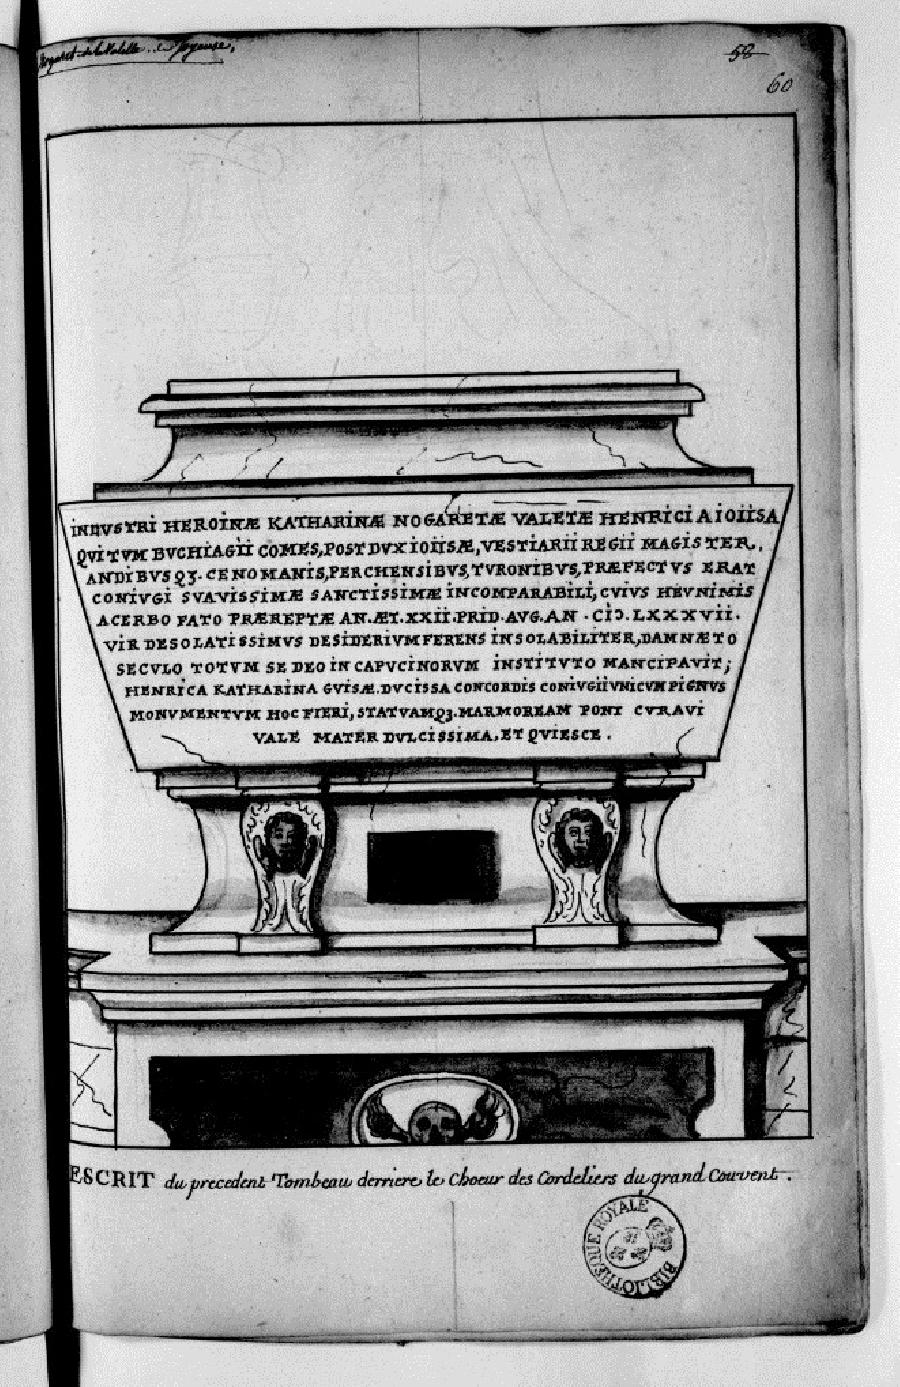 Nogaret de la Valette .. de Joyeuse,
58
60
INDVSTRI HEROINÆ KATHARINÆ NOGARETÆ VALETÆ HENRICI A IOIISA
QVI TVM BVCHIAGII COMES, POST DVX IOIISÆ, VESTIARII REGII MAGISTER,
ANDIBVSQZ. CENOMANIS, PERCHENSIBVS, TVRONIBVS, PRÆFECTVS ERAT
CONIVGI SVAVISSIMÆ SANCTISSIMÆ INCOMPARABILI, CVIVS HEVNIMIS
ACERBO FATO PRÆREPTÆ AN.ÆT.XXII.PRID.AVG.AN . CIↃ.LXXXVII.
VIR DESOLATISSIMVS DESIDERIVM FERENS INSOLABILITER, DAMNÆTO
SECVLO TOTVM SE DEO IN CAPVCINORVM INSTITVTO MANCIPAVIT;
HENRICA KATHARINA GVISÆ.DVCISSA CONCORDIS CONIVGII VNICVM PIGNVS
MONVMENTVM HOC FIERI, STATVAMQZ.MARMOREAM PONI CVRAVI
VALE MATER DVLCISSIMA, ET QVIESCE .
ESCRIT du precedent Tombeau derriere le Choeur des Cordeliers du grand Couvent .
BIBLIOTHEQUE ROYALE